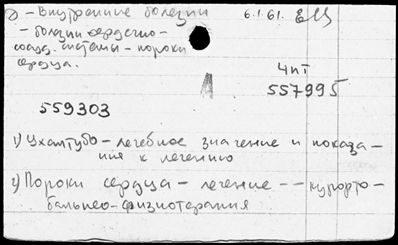 д - Внутренние болезни 6.1.61.
- болезни сердечно-
сосуд. системы - пороки
сердца.
4 пт
557995
559303
1) Цхалтубо - лечебное значение и показа-
ния к лечению
2) Пороки сердца - лечение - - курорто-
бальнео-физиотерапия